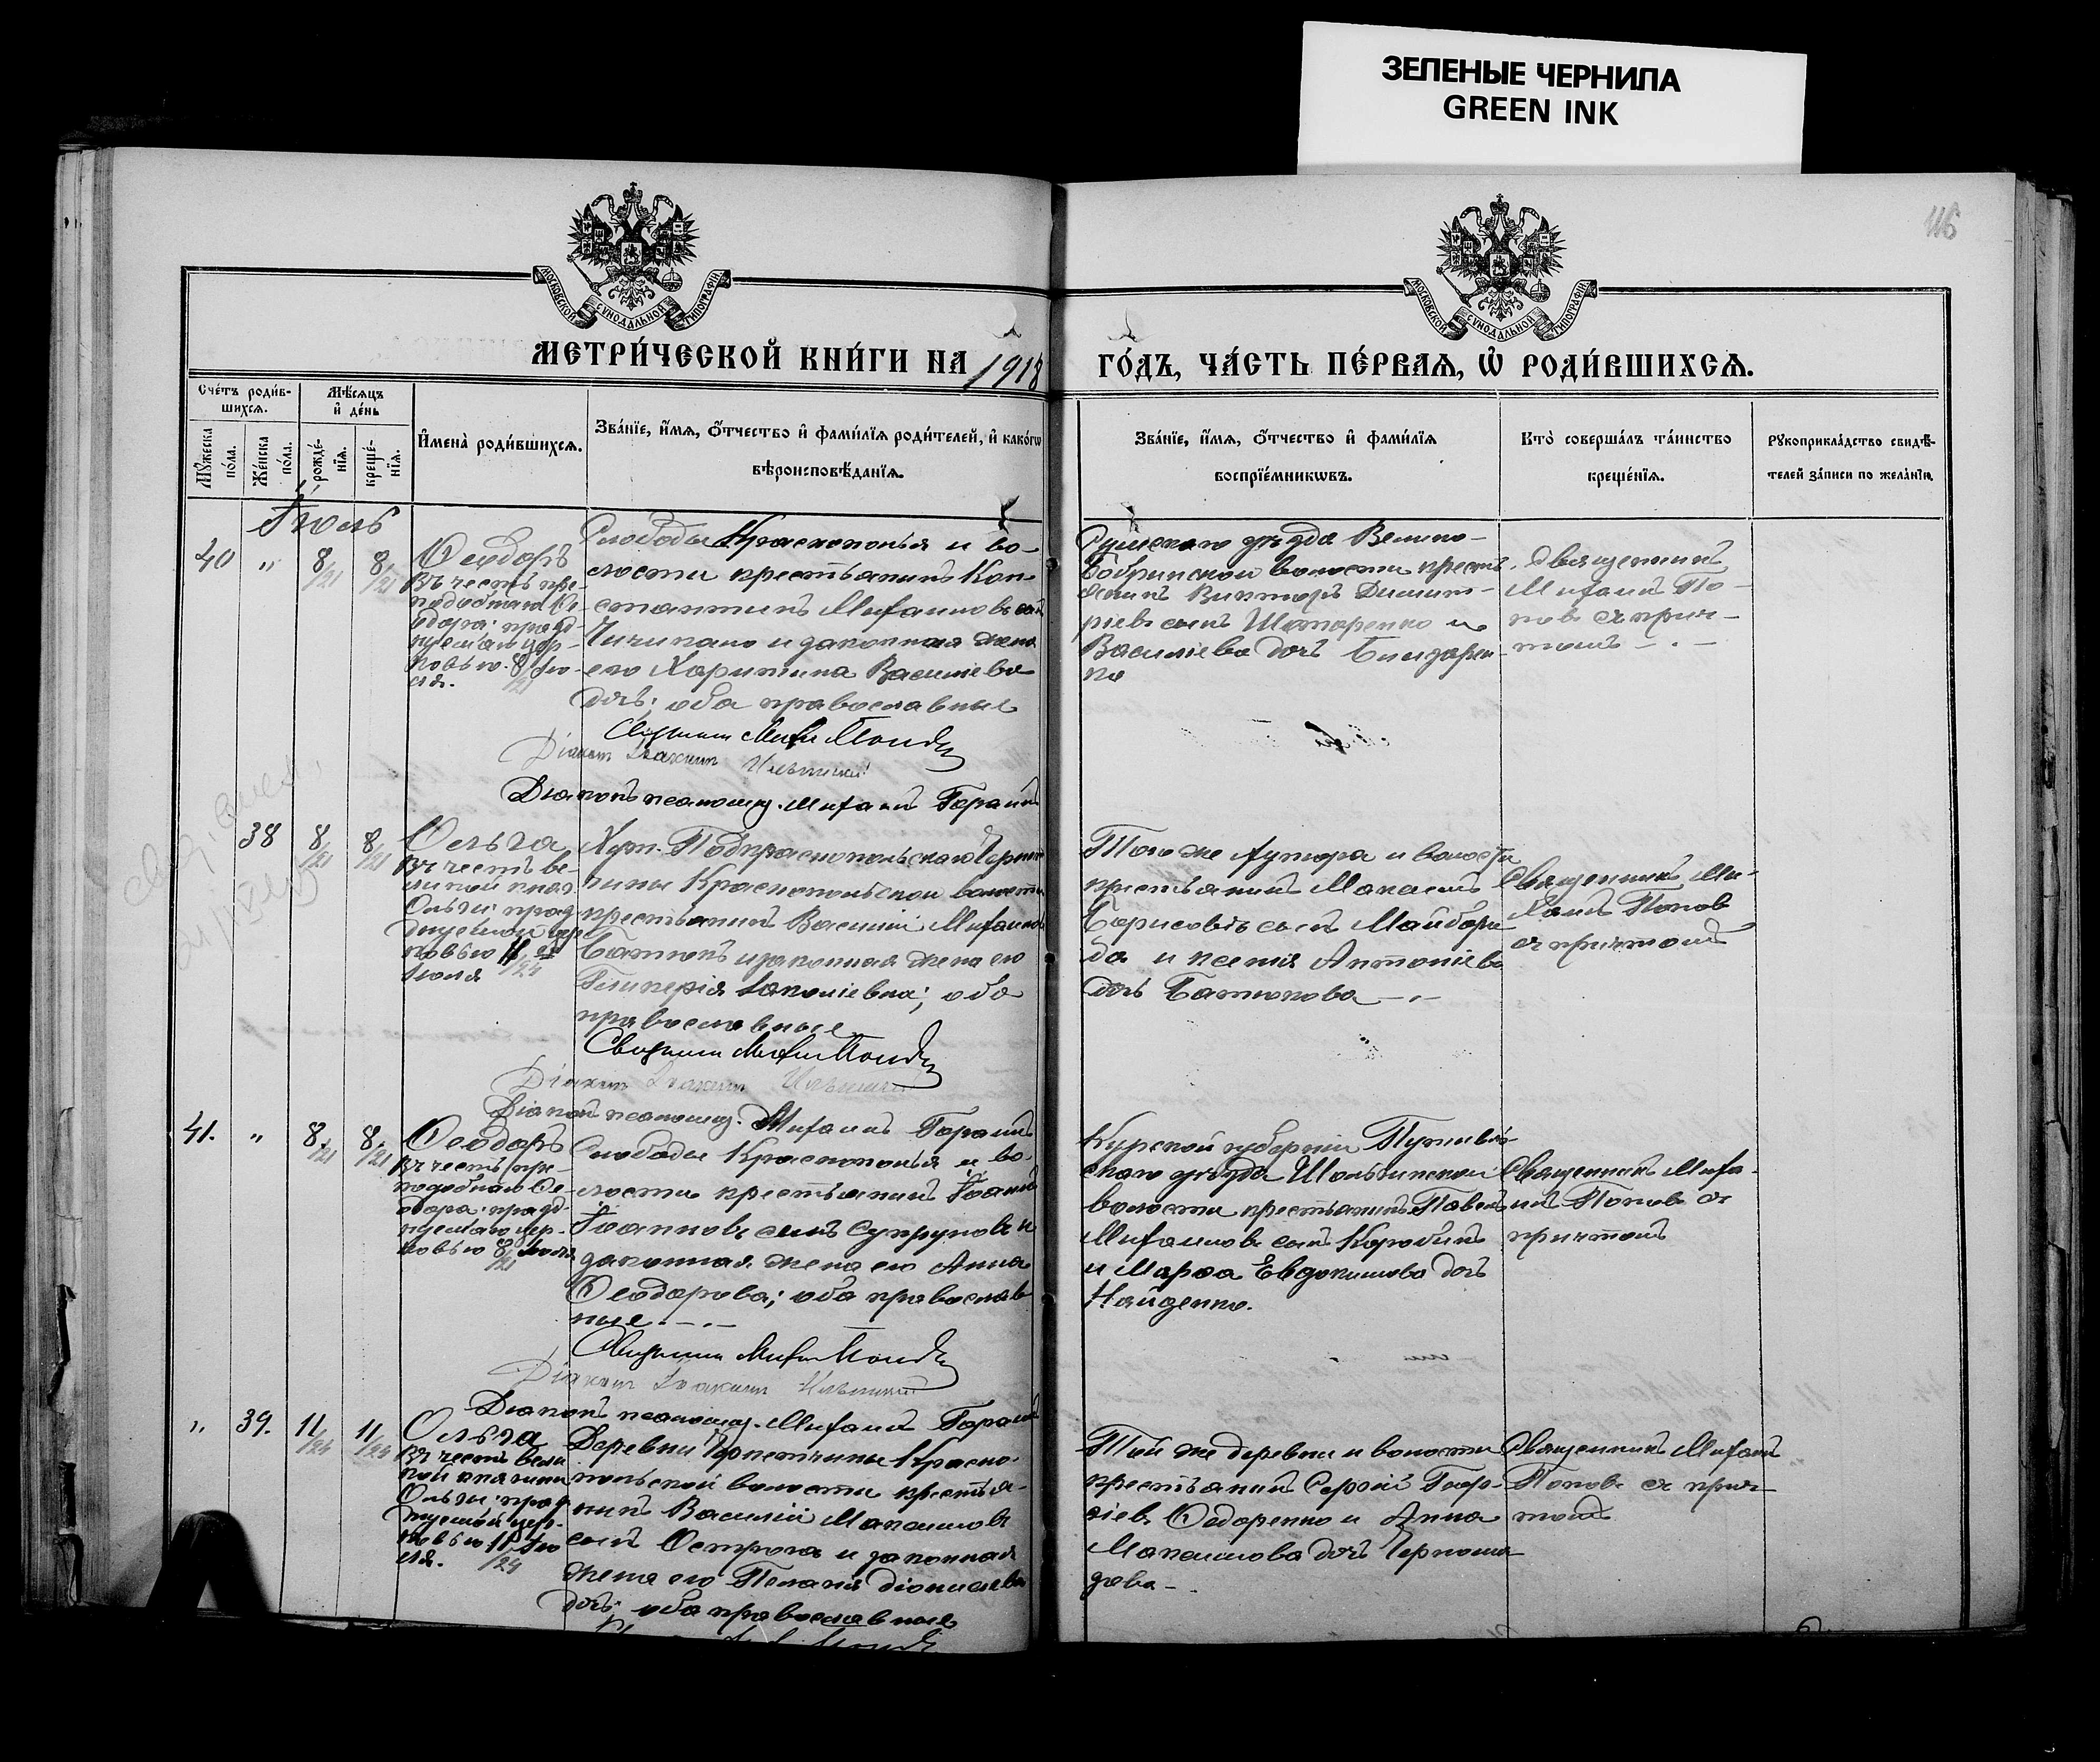 ЗЕЛЕНЫЕ ЧЕРНИЛА
GREEN INK
116
МОСКОВСКОЙ СѴНОДАЛЬНОЙ ТИПОГРАФІИ
МОСКОВСКОЙ СѴНОДАЛЬНОЙ ТИПОГРАФІИ
МЕТРИ́ЧЕСКОЙ КНИ́ГИ НА 1918
ГО́ДЪ, ЧА́СТЬ ПЕ́РВАѦ, Ѡ҆ РОДИ́ВШИХСѦ.
Сче́тъ роди́в-
шихсѧ.
Мѣ́сѧцъ
и҆ де́нь
Мꙋ́жеска
по́ла.
Же́нска
по́ла.
рожде́-
нїѧ.
креще́-
нїѧ.
И҆мена̀ роди́вшихсѧ.
Зва́нїе, и҆́мѧ, ѻ҆́тчество и҆ фами́лїѧ роди́телей, и҆ како́гѡ
вѣроисповѣ́данїѧ.
Зва́нїе, и҆́мѧ, ѻ҆́тчество и҆ фами́лїѧ
воспрїе́мникѡвъ.
Кто̀ соверша́лъ та́инство
креще́нїѧ.
Рꙋкоприкла́дство свидѣ́-
телей за́писи по жела́нїю.
Іюль
40 " 8/21 8/21
Ѳеодоръ
въ честь пре-
подобнаго Ѳе-
одора: празд-
нуемаго цер-
ковью 8/21 Ію-
ля.
Слободы Краснополья и во-
лости крестьянинъ Кон-
стантинъ Михаиловъ сынъ
и законная жена
его Харитина Василіева
дочь; оба православные
Священникъ Михаилъ Поповъ
Діаконъ Іоакимъ
Діаконъ псаломщ. Михаилъ
Сумскаго уѣзда Велико-
Бобрикской волости кресть-
янинъ Викторъ Димит-
ріевъ сынъ Шапаренко и
Василіева дочь Бондарен-
ко
Священникъ
Михаилъ По-
повъ съ прич-
томъ —.—
38 8/21 8/21
Ольга
въ честь ве-
ликой княг.
Ольги: празд-
днуемой цер-
ковью 11/24
Іюля
Хут. Подкраснопольскаго
Краснопольской волости
крестьянинъ Василій Михаиловъ
Батюкъ и законная жена его
Гликерія; оба
православные
Священникъ Михаилъ Поповъ
Діаконъ Іоакимъ
Діаконъ псаломщ. Михаилъ
Того же хутора и волости
крестьянинъ Максимъ
Борисовъ сынъ Майборо-
да и Ксенія Антоніева
дочь Батюкова —.—
Священникъ Ми-
хаилъ Поповъ
съ причтомъ
41. " 8/21 8/21
Ѳеодоръ
въ честь пре-
подобнаго Ѳе-
одора: празд-
нуемаго цер-
ковью 8/21 Іюля
Слободы Краснополья и во-
лости крестьянинъ Іоаннъ
Іоанновъ сынъ Супруновъ и
законная жена его Анна
Ѳеодорова; оба православ-
ные. —.—
Священникъ Михаилъ Поповъ
Діаконъ Іоакимъ
Діаконъ псаломщ. Михаилъ
Курской губерніи Путивль-
скаго уѣзда
волости крестьянинъ Павелъ
Михаиловъ сынъ Коробкинъ
и Марѳа Евдокимова дочь
Найденко.
Священникъ Миха-
илъ Поповъ съ
причтомъ
" 39. 11/24 11/24
Ольга
въ честь вели-
кой княгини
Ольги: празд-
нуемой цер-
ковью 11/24 Ію-
ля.
Деревни Красно-
польской волости крестья-
нинъ Василій Максимовъ
сынъ Острога и законная
жена его Пелагія Діонисіева
дочь; оба православные
Той же деревни и волости
крестьянинъ Сергій Геор-
гіевъ Ѳедоренко и Анна
Максимова дочь
Священникъ Михаилъ
Поповъ съ прич-
томъ